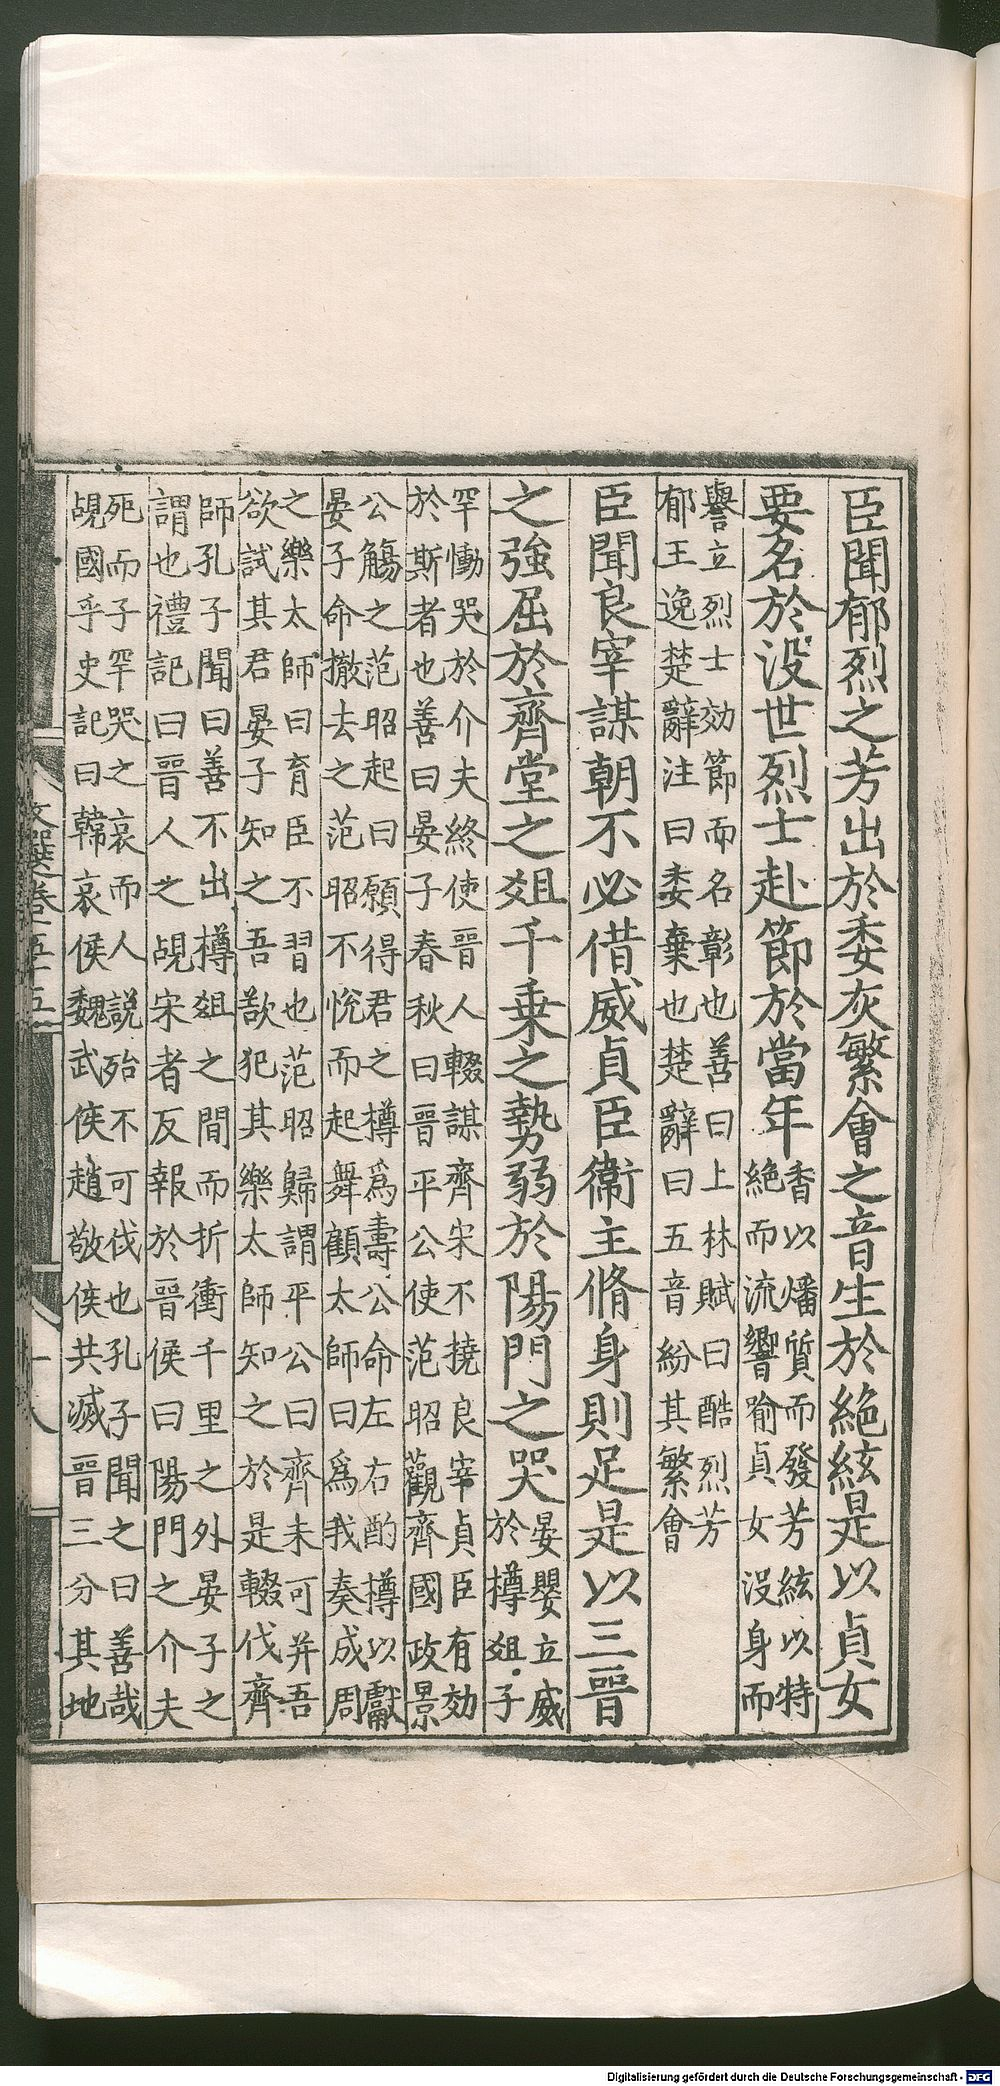 臣聞郁烈之芳出於委灰繁會之音生於絶絃是以貞女
要名於没世烈士赴節於當年
香以燔質而發芳絃以特
絶而流響喻貞女没身而
譽立烈士効節而名彰也善曰上林賦曰酷烈芳
郁王逸楚辭注曰委棄也楚辭曰五音紛其繁會
臣聞良宰謀朝不必借威貞臣衞主脩身則足是以三晉
之強屈於齊堂之俎千乗之勢弱於陽門之哭
晏嬰立威
於樽俎子
罕慟哭於介夫終使晉人輟謀齊宋不撓良宰貞臣有効
於斯者也善曰晏子春秋曰晉平公使范昭觀齊國政景
公觴之范昭起曰願得君之樽爲壽公命左右酌樽以獻
晏子命撤去之范昭不悅而起舞顧太師曰爲我奏成周
之樂太師曰育臣不習也范昭歸謂平公曰齊未可并吾
欲試其君晏子知之吾歆犯其樂太師知之於是輟伐齊
師孔子聞曰善不出樽俎之間而折衝千里之外晏子之
謂也禮記曰晉人之覘宋者反報於晉侯曰陽門之介夫
死而子罕哭之哀而人說殆不可伐也孔子聞之曰善哉
覘國乎史記曰韓哀侯魏武侯趙敬侯共滅晉三分其地
文選卷五十五
十八
Digitalisierung gefördert durch die Deutsche Forschungsgemeinschaft - DFG